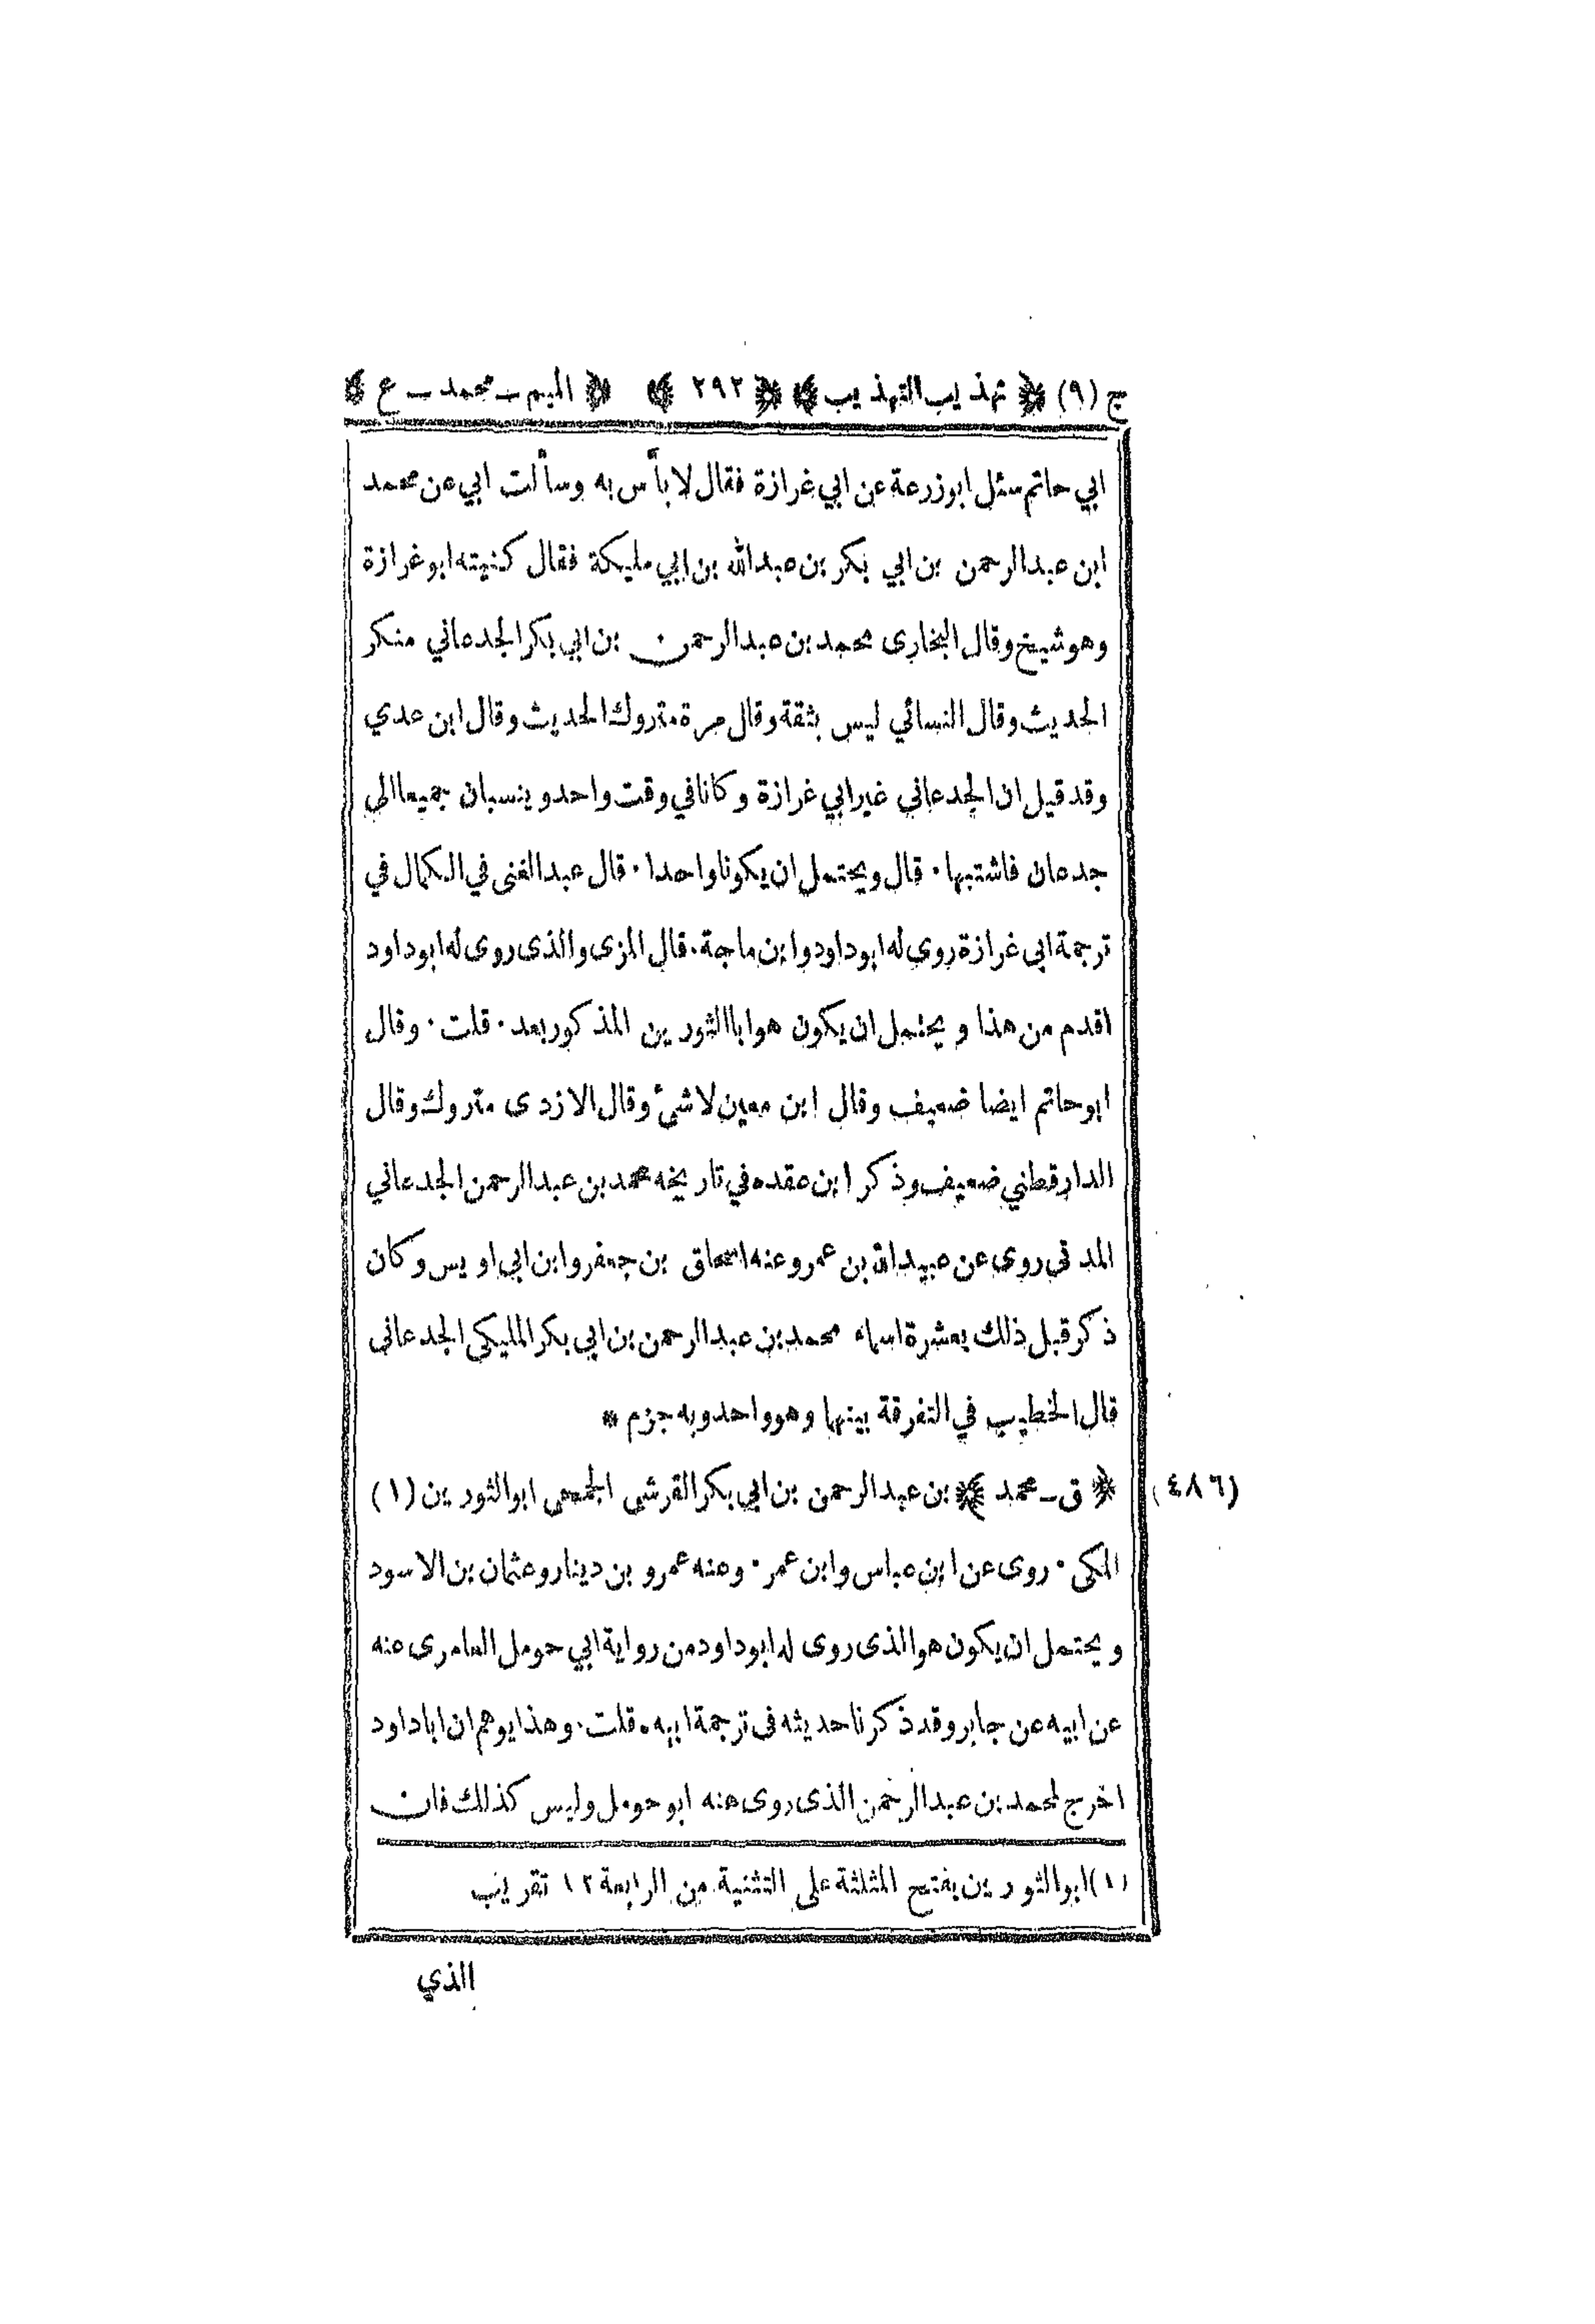 ج (٩) ﴿ تهذيب التهذيب ﴾ ﴿ ٢٩٢ ﴾ ﴿ الميم - محمد - ع ﴾
ابي حاتم سئل ابو زرعة عن ابي غرازة فقال لا بأس به وسألت ابي عن محمد
ابن عبد الرحمن بن ابي بكر بن عبد الله بن ابي مليكة فقال كنيته ابو غرازة
وهو شيخ وقال البخارى محمد بن عبد الرحمن بن ابي بكر الجدعاني منكر
الحديث وقال النسائي ليس بثقة وقال مرة متروك الحديث وقال ابن عدي
وقد قيل ان الجدعاني غير ابي غرازة وكانا في وقت واحد وينسبان جميعا الى
جدعان فاشتبها · قال ويحتمل ان يكونا واحدا · قال عبد الغنى في الكمال في
ترجمة ابي غرازة روى له ابو داود وابن ماجة · قال المزى والذى روى له ابو داود
اقدم من هذا ويحتمل ان يكون هو ابا الثورين المذكور بعد · قلت · وقال
ابو حاتم ايضا ضعيف وقال ابن معين لا شئ وقال الازدى متروك وقال
الدارقطني ضعيف وذكر ابن عقده في تاريخه محمد بن عبد الرحمن الجدعاني
المدني روى عن عبيد الله بن عمر وعنه اسحاق بن جعفر وابن ابي اويس وكان
ذكر قبل ذلك بعشرة اسماء محمد بن عبد الرحمن بن ابي بكر المليكى الجدعانى
قال الخطيب في التفرقة بينهما وهو واحد وبه جزم *
(٤٨٦) ﴿ ق - محمد ﴾ بن عبد الرحمن بن ابي بكر القرشى الجمحى ابو الثورين (١)
المكى · روى عن ابن عباس وابن عمر · وعنه عمرو بن دينار وعثمان بن الاسود
ويحتمل ان يكون هو الذى روى له ابو داود من رواية ابي حومل العامرى عنه
عن ابيه عن جابر وقد ذكرنا حديثه فى ترجمة ابيه · قلت · وهذا يوهم ان ابا داود
اخرج لمحمد بن عبد الرحمن الذى روى عنه ابو حومل وليس كذلك فان
(١) ابو الثورين بفتح المثلثة على التثنية من الرابعة ١٢ تقريب
الذي